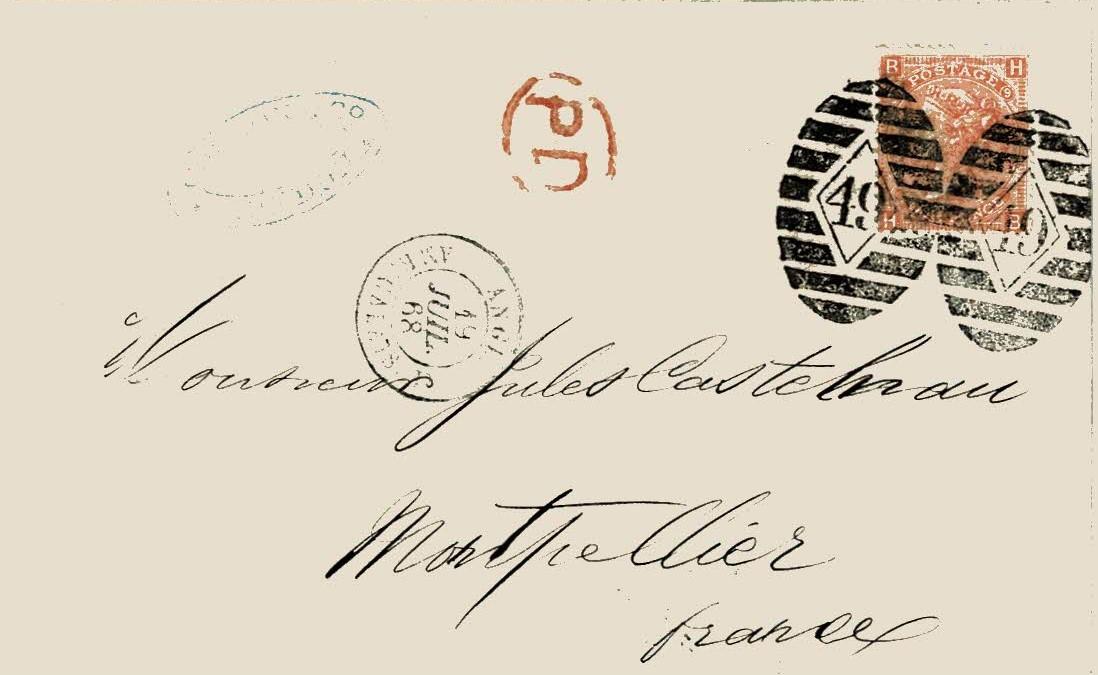 R H
POSTAGE
9
H B
49
49
PD
ANGL.
AMB. CALAIS
19
JUIL.
68
Monsieur Jules Castelnau
Montpellier
france